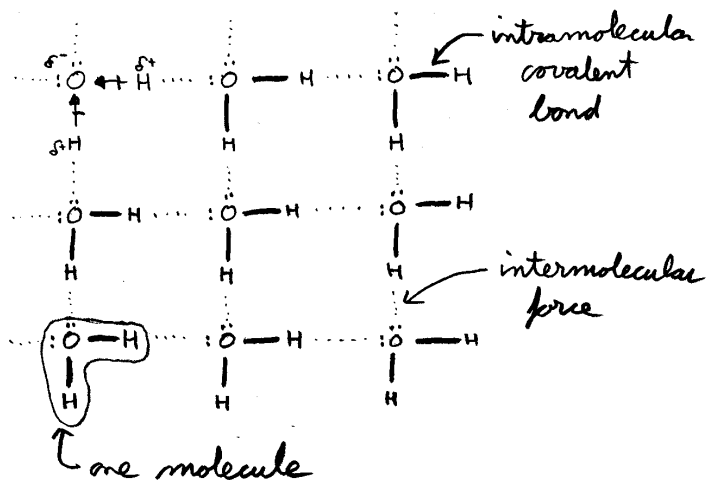 δ- δ+
:Ö H :Ö H :Ö H
intramolecular
covalent
bond
δ+ H H H
:Ö H :Ö H :Ö H
H H H
intermolecular
force
:Ö H :Ö H :Ö H
H H H
one molecule